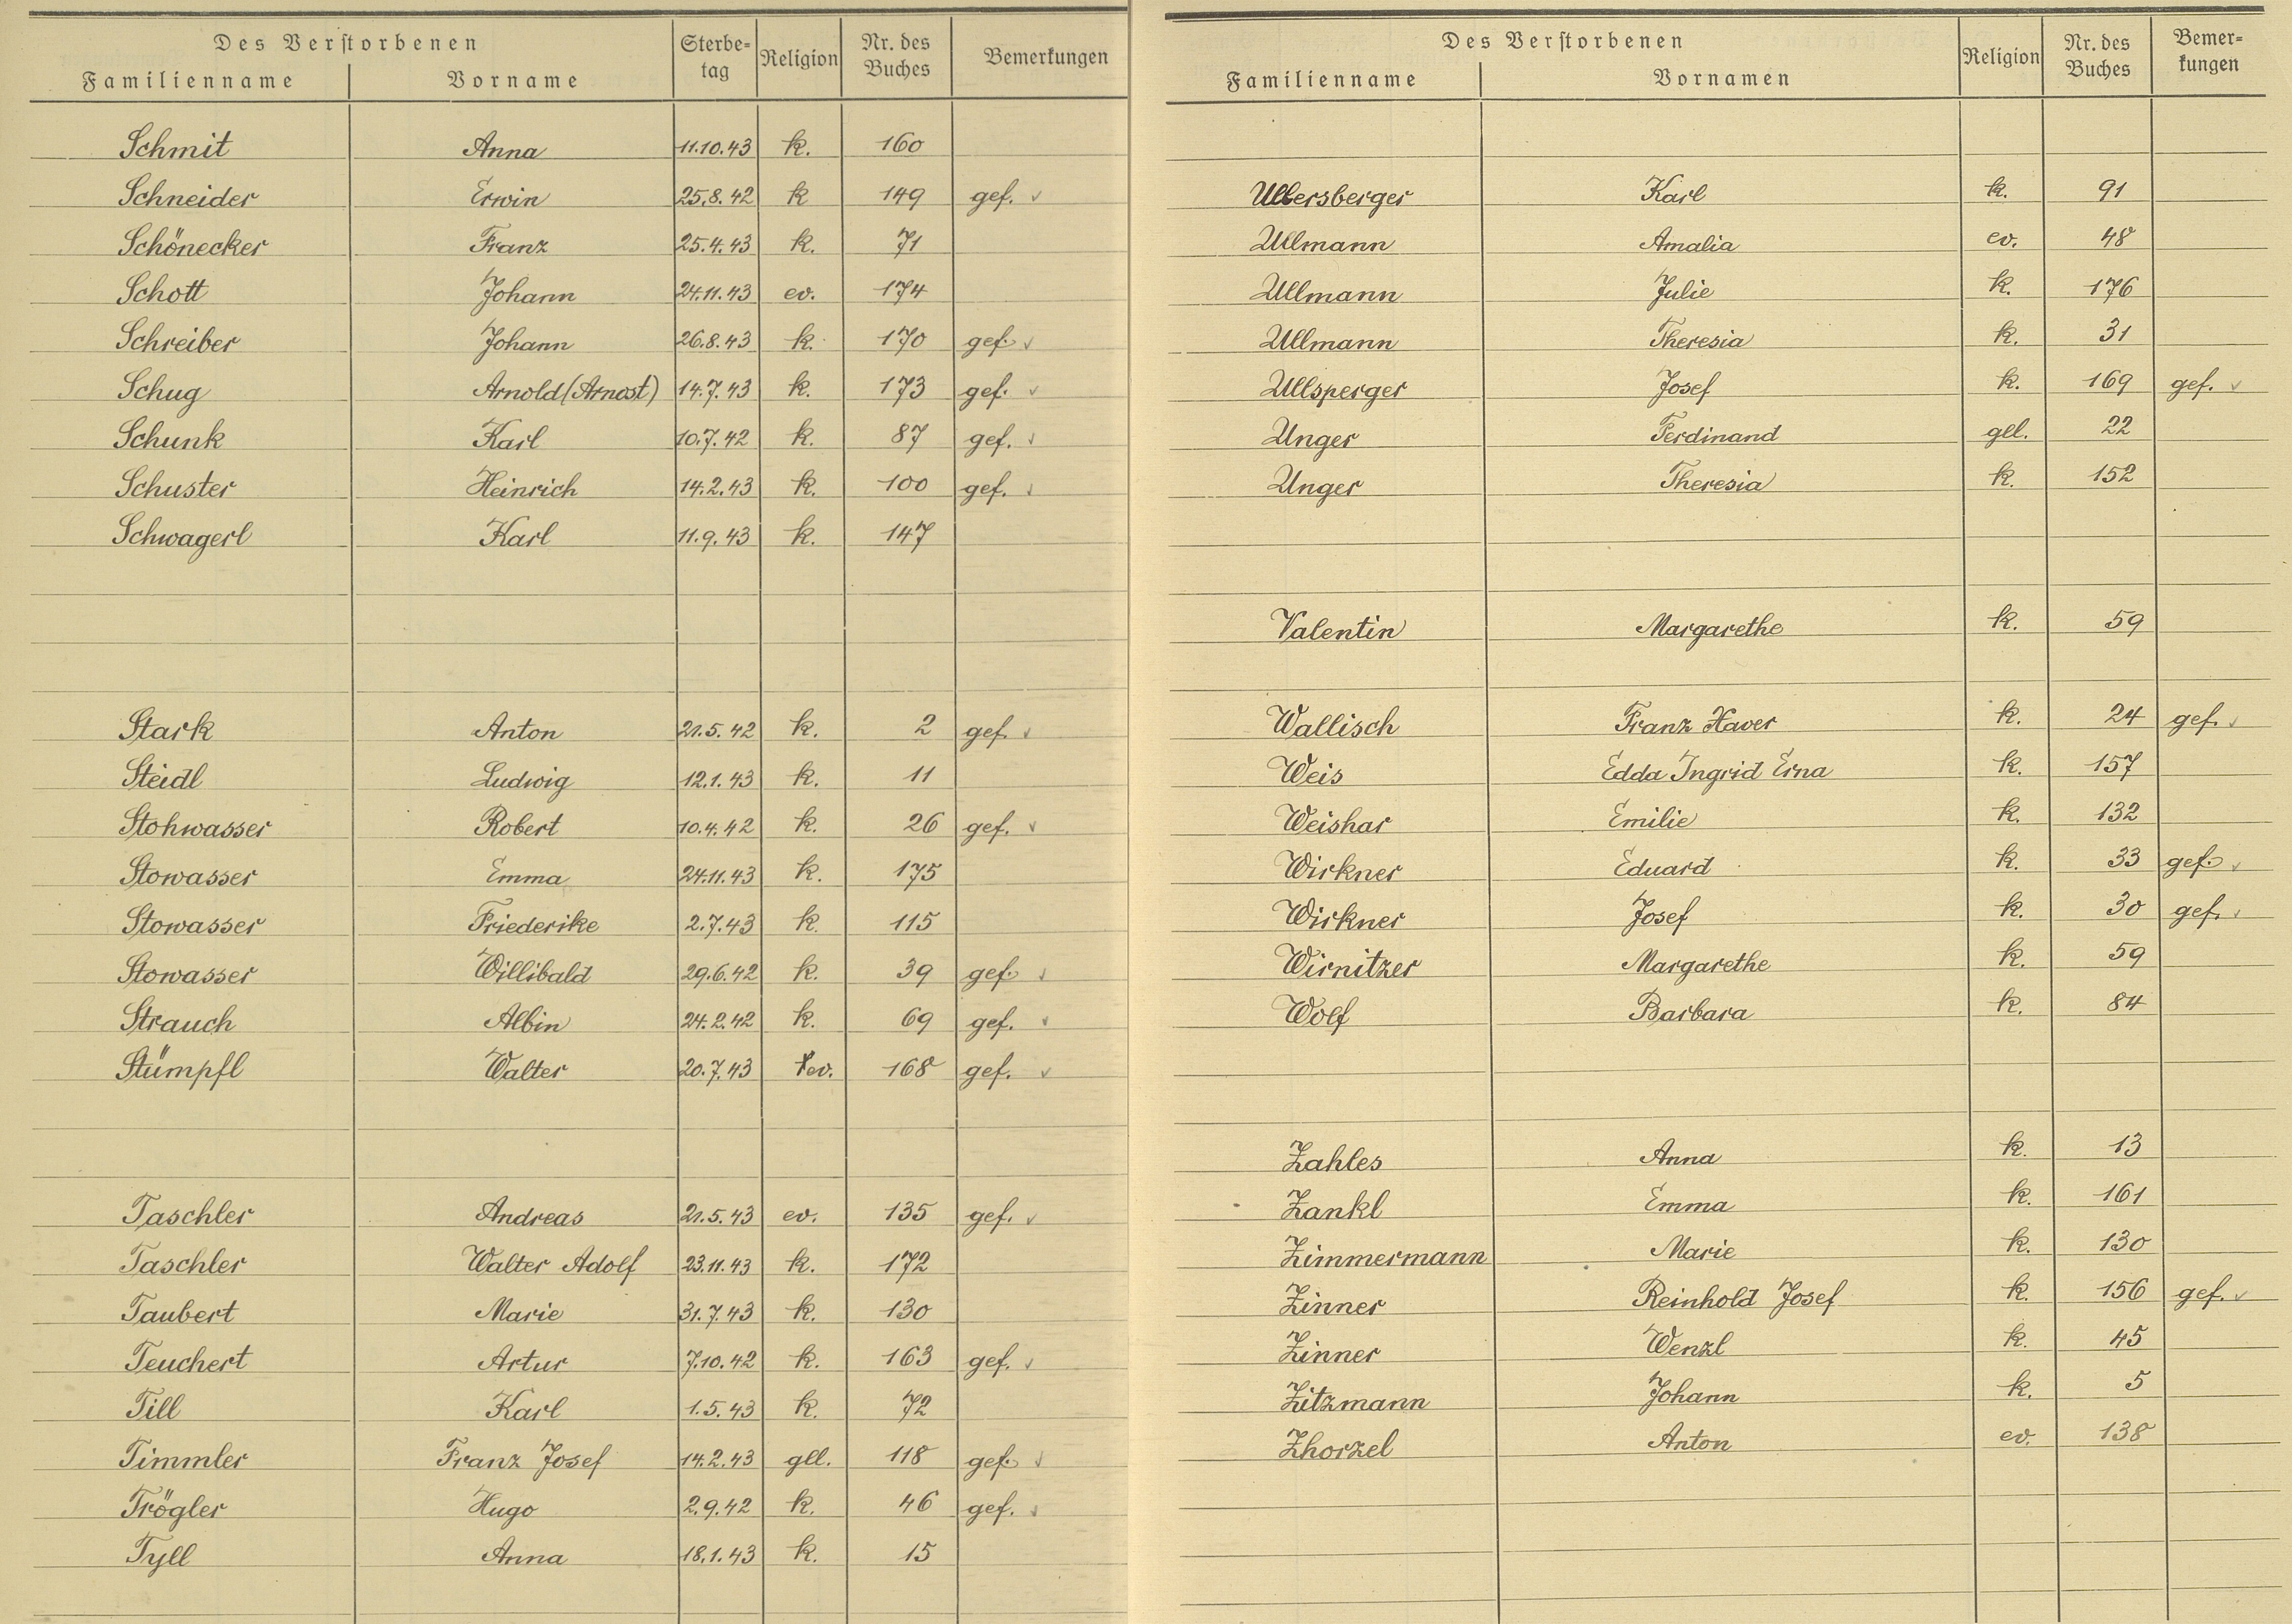 Des Verstorbenen Sterbe- Religion Nr. des Bemerkungen
Familienname Vorname tag Buches
Schmit Anna 11.10.43 k. 160
Schneider Erwin 25.8.42 k 149 gef. ✓
Schönecker Franz 25.4.43 k. 71
Schott Johann 24.11.43 ev. 174
Schreiber Johann 26.8.43 k. 170 gef. ✓
Schug Arnold (Arnost) 14.7.43 k. 173 gef. ✓
Schunk Karl 10.7.42 k. 87 gef. ✓
Schuster Heinrich 14.2.43 k. 100 gef. ✓
Schwagerl Karl 11.9.43 k. 147
Stark Anton 21.5.42 k. 2 gef. ✓
Steidl Ludwig 12.1.43 k. 11
Stohwasser Robert 10.4.42 k. 26 gef. ✓
Stowasser Emma 24.11.43 k. 175
Stowasser Friederike 2.7.43 k. 115
Stowasser Willibald 29.6.42 k. 39 gef. ✓
Strauch Albin 24.2.42 k. 69 gef. ✓
Stümpfl Walter 20.7.43 ev. 168 gef. ✓
Taschler Andreas 21.5.43 ev. 135 gef. ✓
Taschler Walter Adolf 23.11.43 k. 172
Taubert Marie 31.7.43 k. 130
Teuchert Artur 7.10.42 k. 163 gef. ✓
Till Karl 1.5.43 k. 72
Timmler Franz Josef 14.2.43 gll. 118 gef. ✓
Trögler Hugo 2.9.42 k. 46 gef. ✓
Tyll Anna 18.1.43 k. 15
Des Verstorbenen Religion Nr. des Bemer-
Familienname Vornamen Buches kungen
Ullersberger Karl k. 91
Ullmann Amalia ev. 48
Ullmann Julie k. 176
Ullmann Theresia k. 31
Ullsperger Josef k. 169 gef. ✓
Unger Ferdinand gll. 22
Unger Theresia k. 152
Valentin Margarethe k. 59
Wallisch Franz Xaver k. 24 gef. ✓
Weis Edda Ingrid Erna k. 157
Weishar Emilie k. 132
Wirkner Eduard k. 33 gef. ✓
Wirkner Josef k. 30 gef. ✓
Wirnitzer Margarethe k. 59
Wolf Barbara k. 84
Zahles Anna k. 13
Zankl Emma k. 161
Zimmermann Marie k. 130
Zinner Reinhold Josef k. 156 gef. ✓
Zinner Wenzl k. 45
Zitzmann Johann k. 5
Zhorzel Anton ev. 138